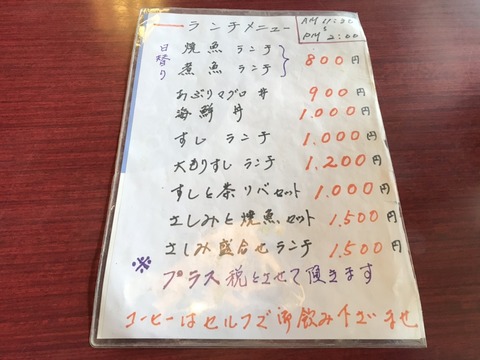 ランチメニュー
AM 11:30
〜
PM 2:00
日替り
焼魚 ランチ
煮魚 ランチ
800円
あぶりマグロ丼 900円
海鮮丼 1.000円
すし ランチ 1.000円
大もりすし ランチ 1.200円
すしと茶リベセット 1.000円
さしみと焼魚セット 1.500円
さしみ盛合せランチ 1.500円
※ プラス税とさせて頂きます
コーヒーはセルフで御飲み下ざいませ